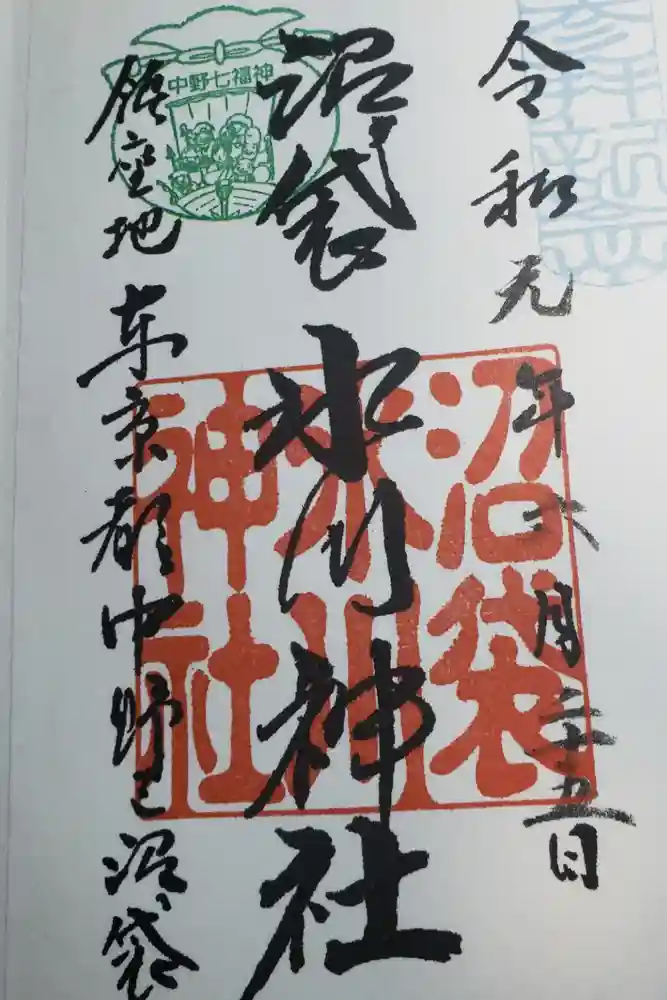 参拝記念
令和元年六月二十五日
沼袋氷川神社
沼袋氷川神社
中野七福神
鎮座地東京都中野区沼袋